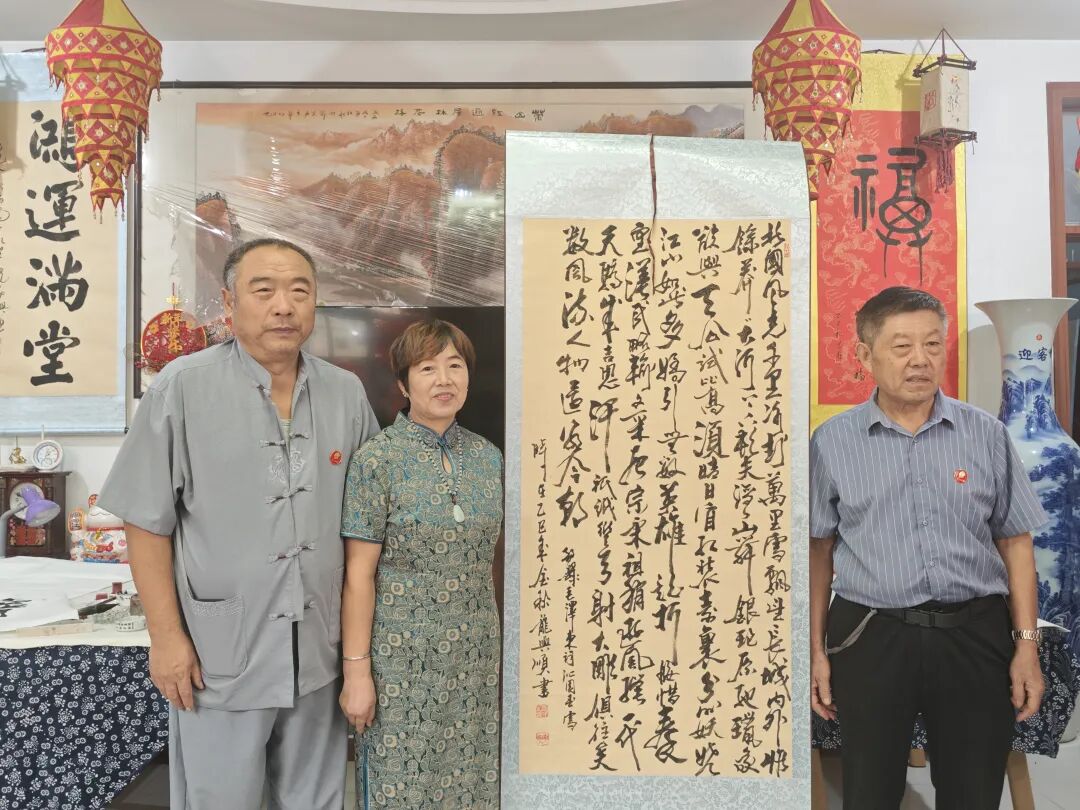 鴻運滿堂
福
迎客
北國風光千里冰封萬里雪飄望長城內外惟
餘莽莽大河上下頓失滔滔山舞銀蛇原馳蠟象
欲與天公試比高須晴日看紅裝素裹分外妖嬈
江山如此多嬌引無數英雄競折腰惜秦
皇漢武略輸文采唐宗宋祖稍遜風騷一代
天驕成吉思汗祇識彎弓射大雕俱往矣
數風流人物還看今朝
毛澤東詞沁園春雪
時在乙巳年金秋龍興順書